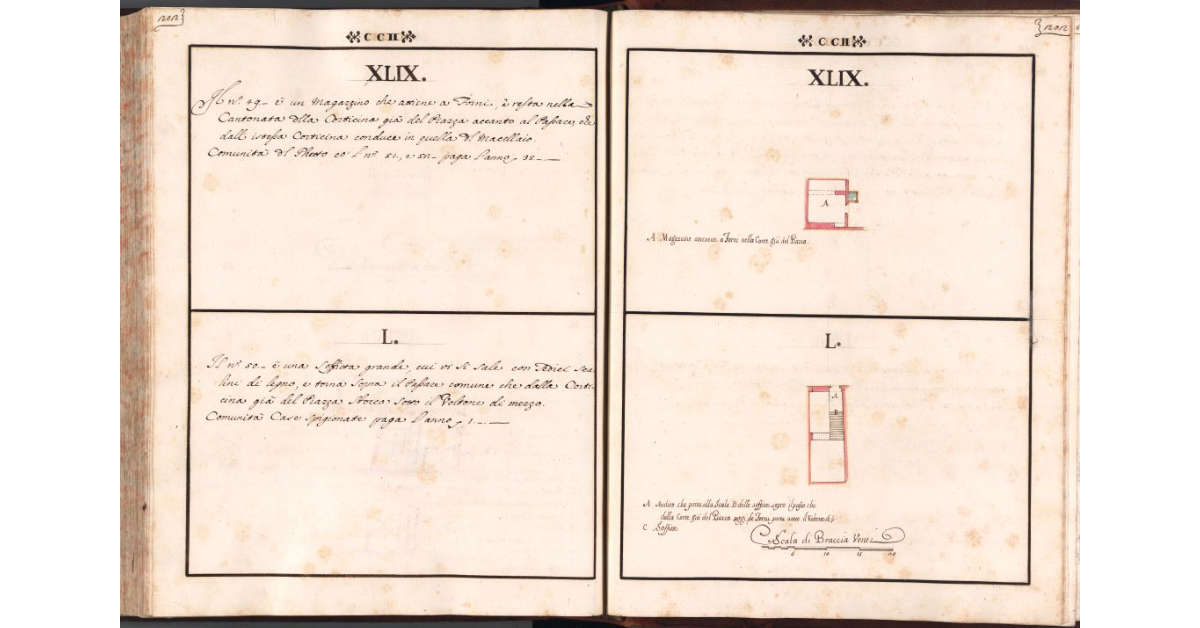 202
CCII
XLIX.
Il nº. 49 – è un Magazzino che attiene a Forni, e resta nella
Cantonata della Corticina già del Piazza accanto al Passare, che
dall' istessa Corticina conduce in quella del Macellaio.
Comunità del Ghetto co' nº. 51., e 52 – paga l'anno
L.
Il nº 50 – è una Soffitta grande, cui vi si sale con Dodici sca
lini di legno, e torna sopra il Passare comune che dalla Corti
cina già del Piazza sbocca sotto il Voltone di mezzo.
Comunità Case spigionate paga l'anno 1.–
202
CCII
XLIX.
A
A Magazzino a Forni nella Corte già del Piazza.
L.
A
B
A Andito che porta alla Scala B delle soffitte sopra il che
dalla Corte già del Piazza oggi de Forni porta sotto il Voltone di
C Soffitta
Scala di Braccia Venti
5 10 15 20